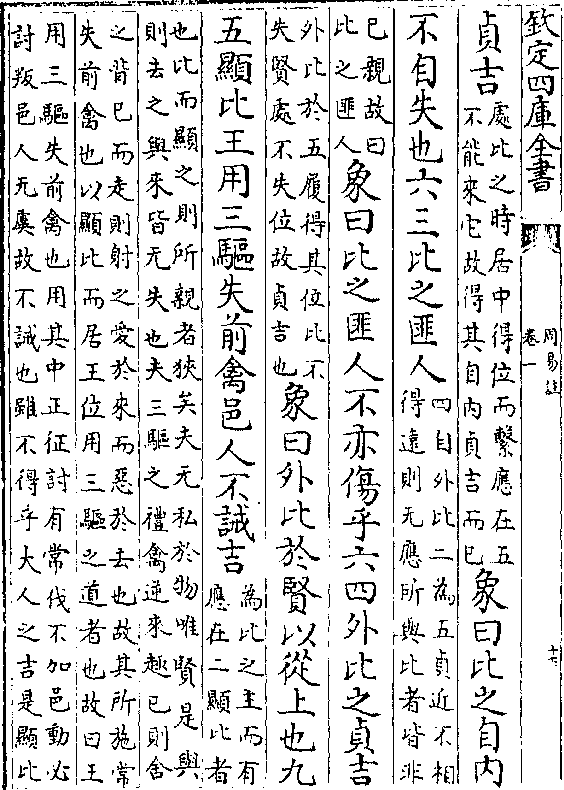 欽定四庫全書
周易註
卷一
十七
貞吉
處比之時居中得位而繫應在五
不能來它故得其自內貞吉而已
象曰比之自內
不自失也六三比之匪人
四自外比二為五貞近不相
得遠則无應所與比者皆非
已親故曰
比之匪人
象曰比之匪人不亦傷乎六四外比之貞吉
外比於五履得其位比不
失賢處不失位故貞吉也
象曰外比於賢以從上也九
五顯比王用三驅失前禽邑人不誡吉
為比之主而有
應在二顯比者
也比而顯之則所親者狹矣夫无私於物唯賢是與
則去之與來皆无失也夫三驅之禮禽逆來趣已則舍
之背已而走則射之愛於來而惡於去也故其所施常
失前禽也以顯比而居王位用三驅之道者也故曰王
用三驅失前禽也用其中正征討有常伐不加邑動必
討叛邑人无虞故不誡也雖不得乎大人之吉是顯比